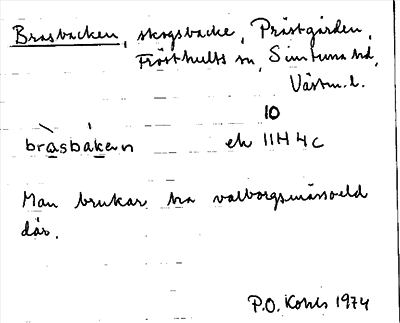 Brasbacken, skogsbacke, Prästgården,
Frösthults sn, Simtuna hd,
Västm. l.
10
bràsbáken ek 11H 4c
Man brukar ha valborgsmässoeld
där.
P.O. Kohls 1974